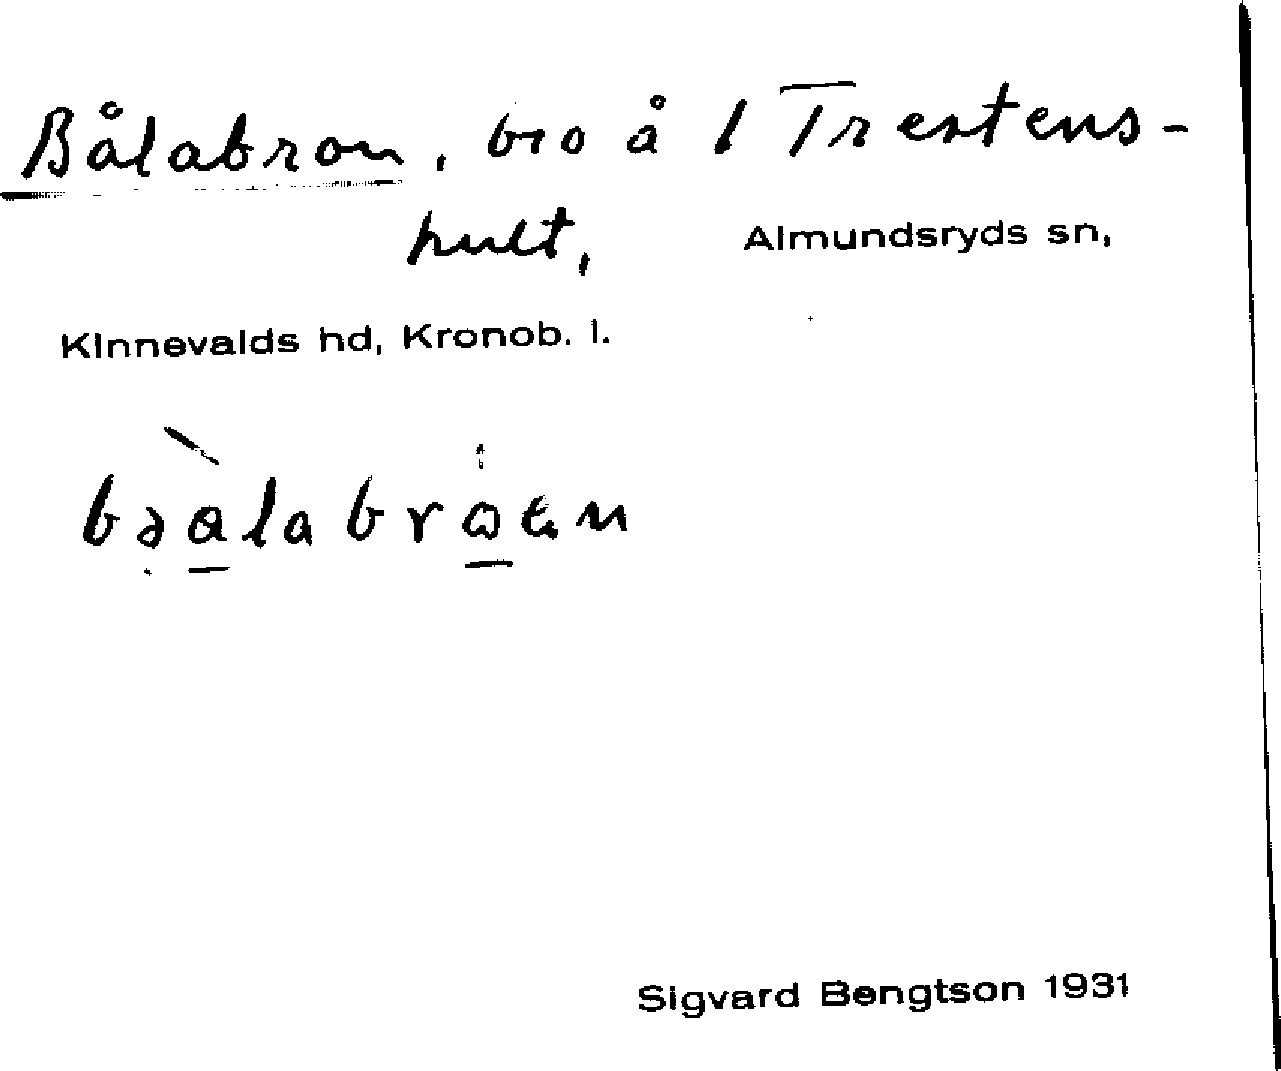 Bålabron, bro å / Trestens-
hult, Almundsryds sn,
Kinnevalds hd, Kronob. l.
Sigvard Bengtson 1931